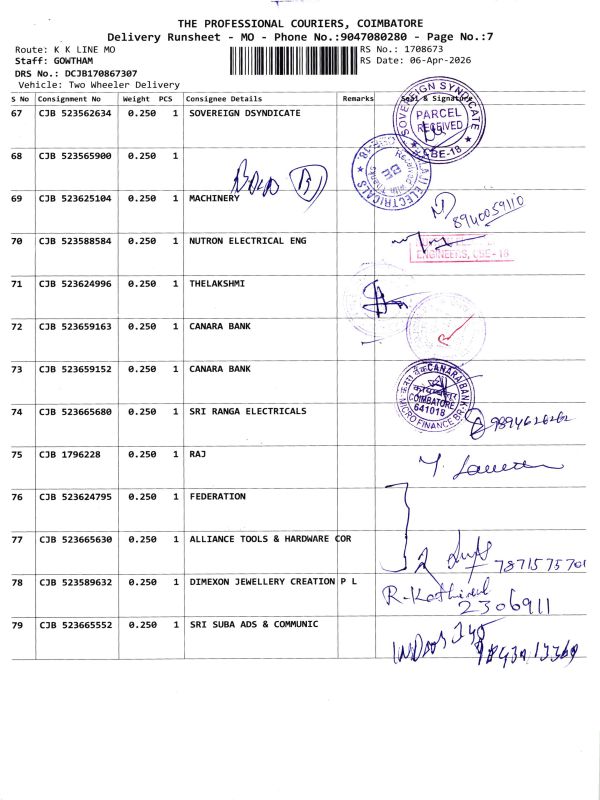 THE PROFESSIONAL COURIERS, COIMBATORE
Delivery Runsheet - MO - Phone No.:9047080280 - Page No.:7
Route: K K LINE MO
RS No.: 1708673
Staff: GOWTHAM
RS Date: 06-Apr-2026
DRS No.: DCJB170867307
Vehicle: Two Wheeler Delivery
S No Consignment No Weight PCS Consignee Details Remarks Seal & Signature
67 CJB 523562634 0.250 1 SOVEREIGN DSYNDICATE
SOVEREIGN SYNDICATE
PARCEL
RECEIVED
CBE-18
68 CJB 523565900 0.250 1
ELECTRICALS
Received with Thanks
69 CJB 523625104 0.250 1 MACHINERY
8940059110
70 CJB 523588584 0.250 1 NUTRON ELECTRICAL ENG
ENGINEERS, CBE-18
71 CJB 523624996 0.250 1 THELAKSHMI
72 CJB 523659163 0.250 1 CANARA BANK
73 CJB 523659152 0.250 1 CANARA BANK
CANARA BANK
COIMBATORE
641018
MICRO FINANCE BR
74 CJB 523665680 0.250 1 SRI RANGA ELECTRICALS
75 CJB 1796228 0.250 1 RAJ
76 CJB 523624795 0.250 1 FEDERATION
77 CJB 523665630 0.250 1 ALLIANCE TOOLS & HARDWARE COR
7871575701
78 CJB 523589632 0.250 1 DIMEXON JEWELLERY CREATION P L
R. Kathirvel
2306911
79 CJB 523665552 0.250 1 SRI SUBA ADS & COMMUNIC